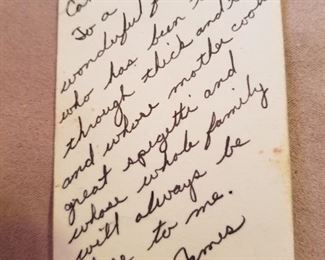 To a
wonderful
who has been
through thick and
and whose mother cook
great spigetti and
whose whole family
will always be
to me.
James